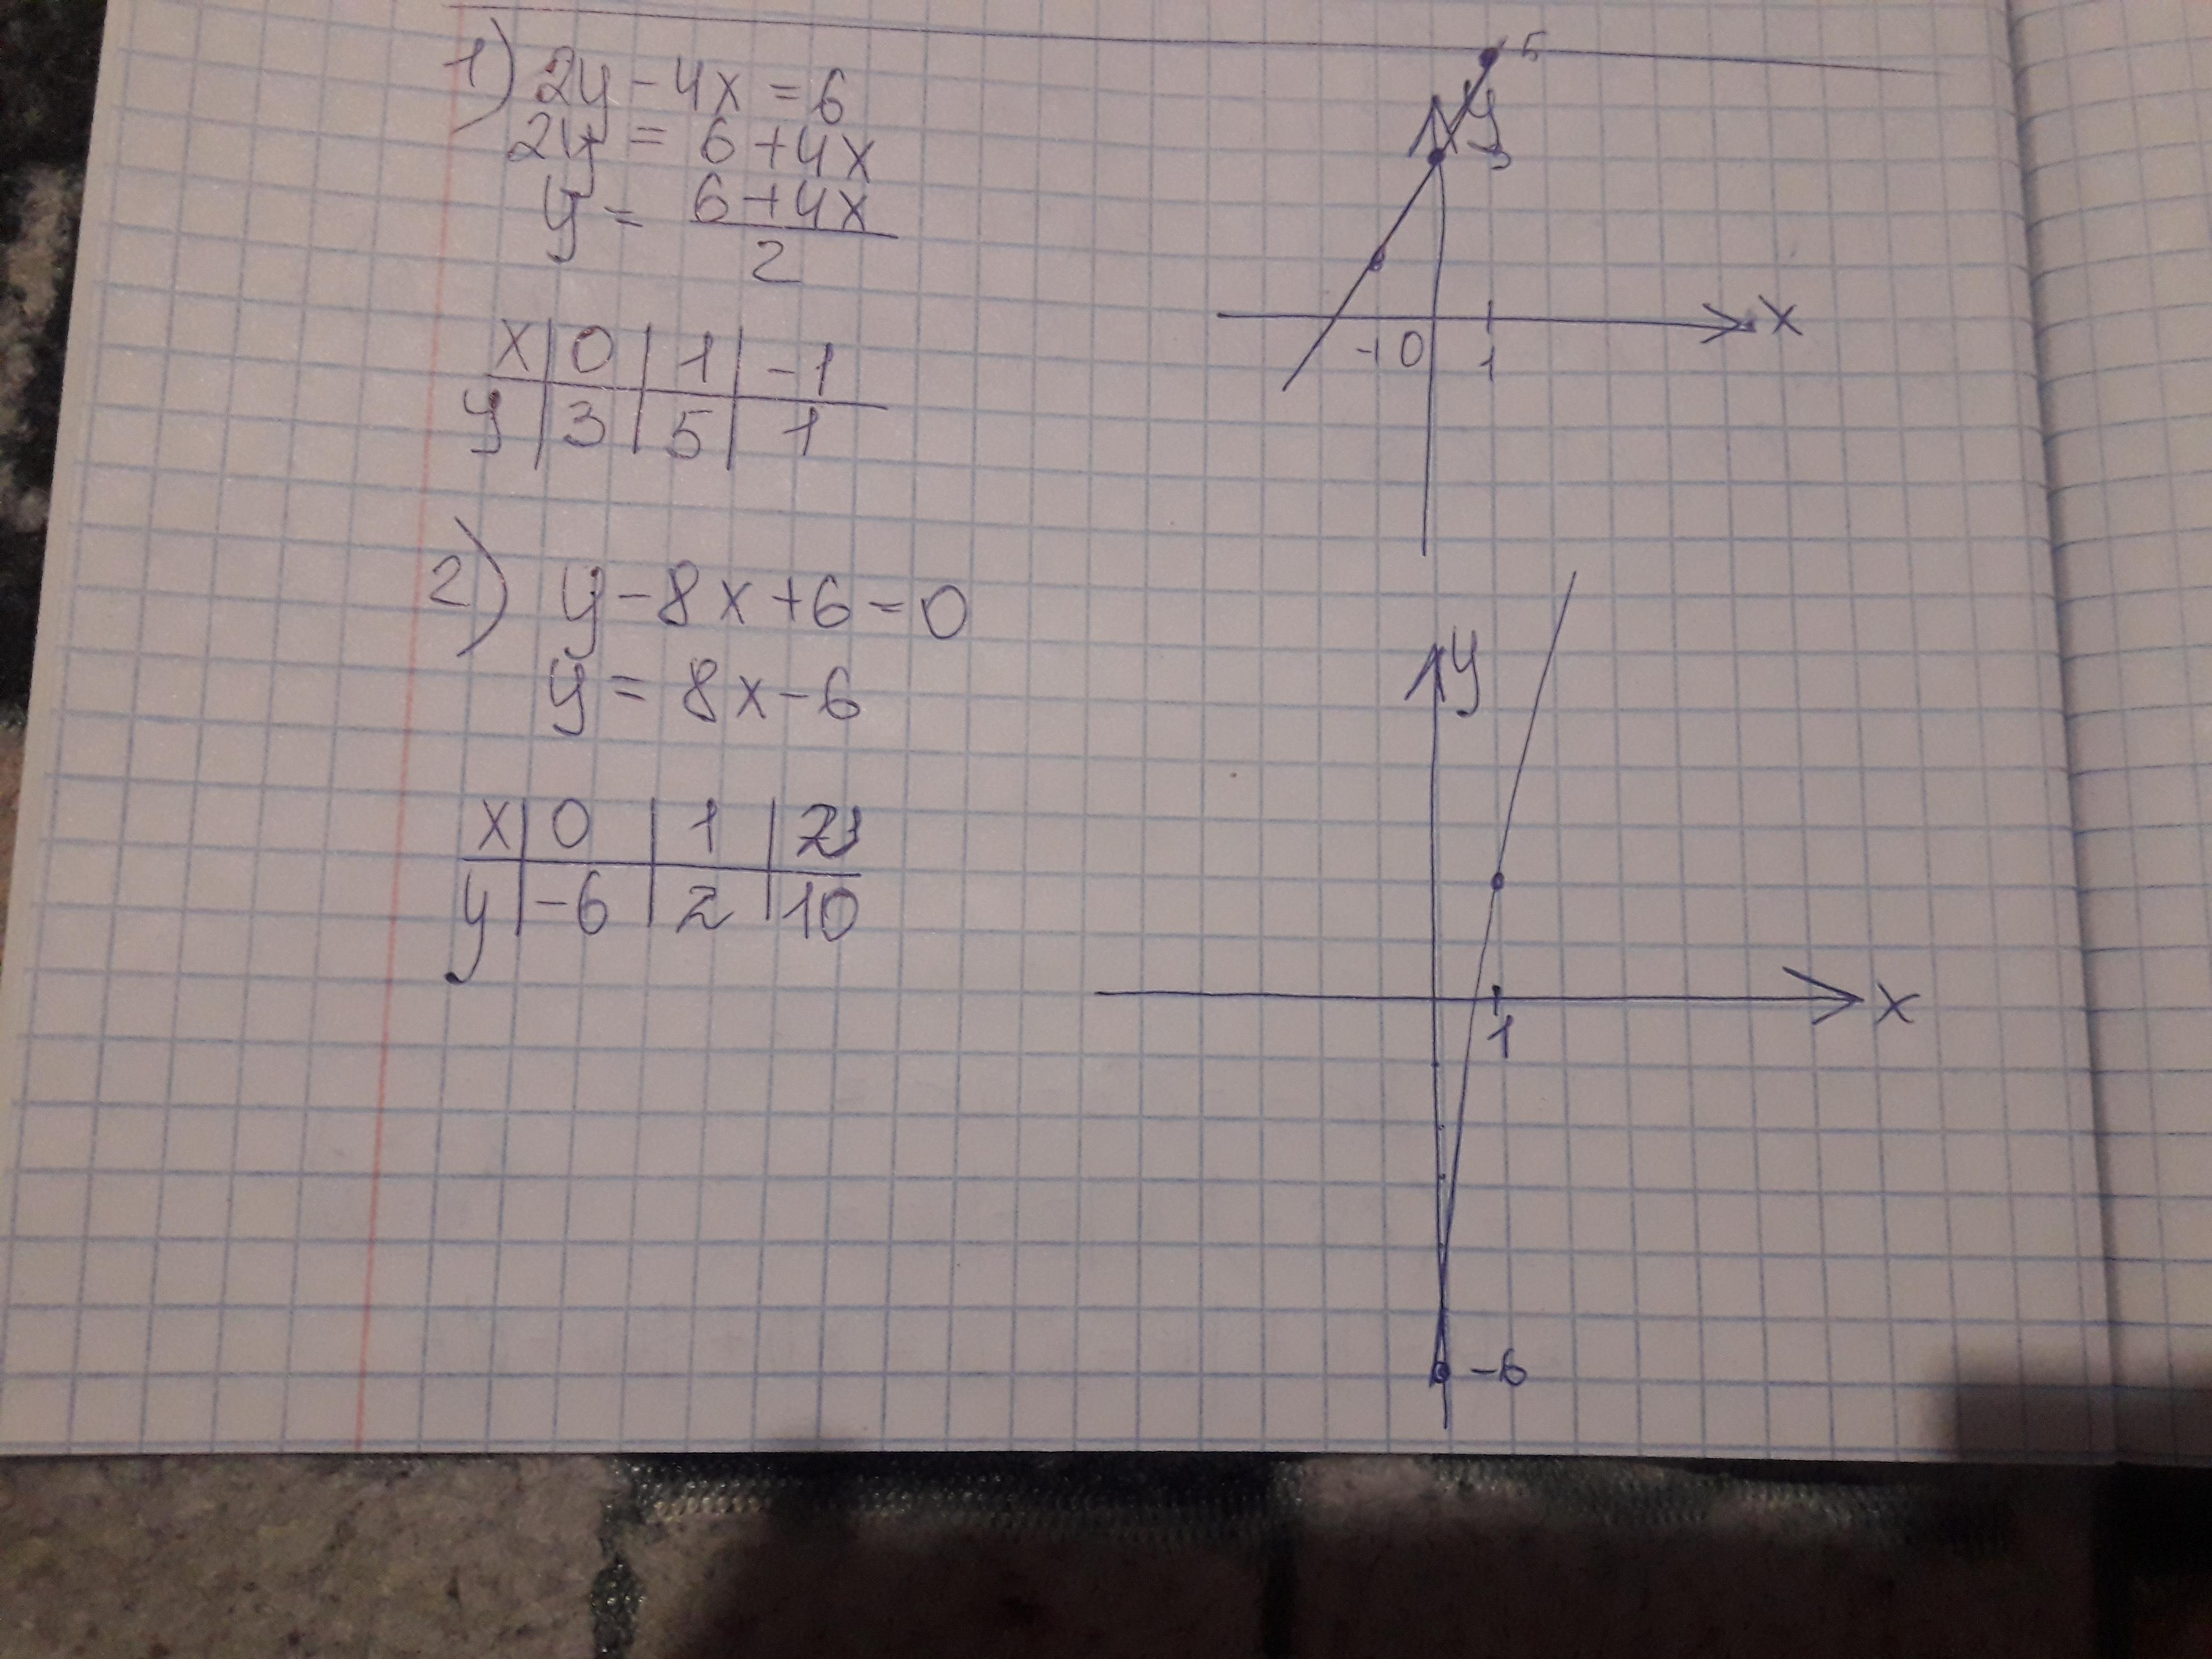 1) 2y - 4x = 6
2y = 6 + 4x
y = 6 + 4x / 2
x | 0 | 1 | -1
y | 3 | 5 | 1
5
y
3
x
-1 0 1
2) y - 8x + 6 = 0
y = 8x - 6
x | 0 | 1 |
y | -6 | 2 | 10
y
x
1
-6